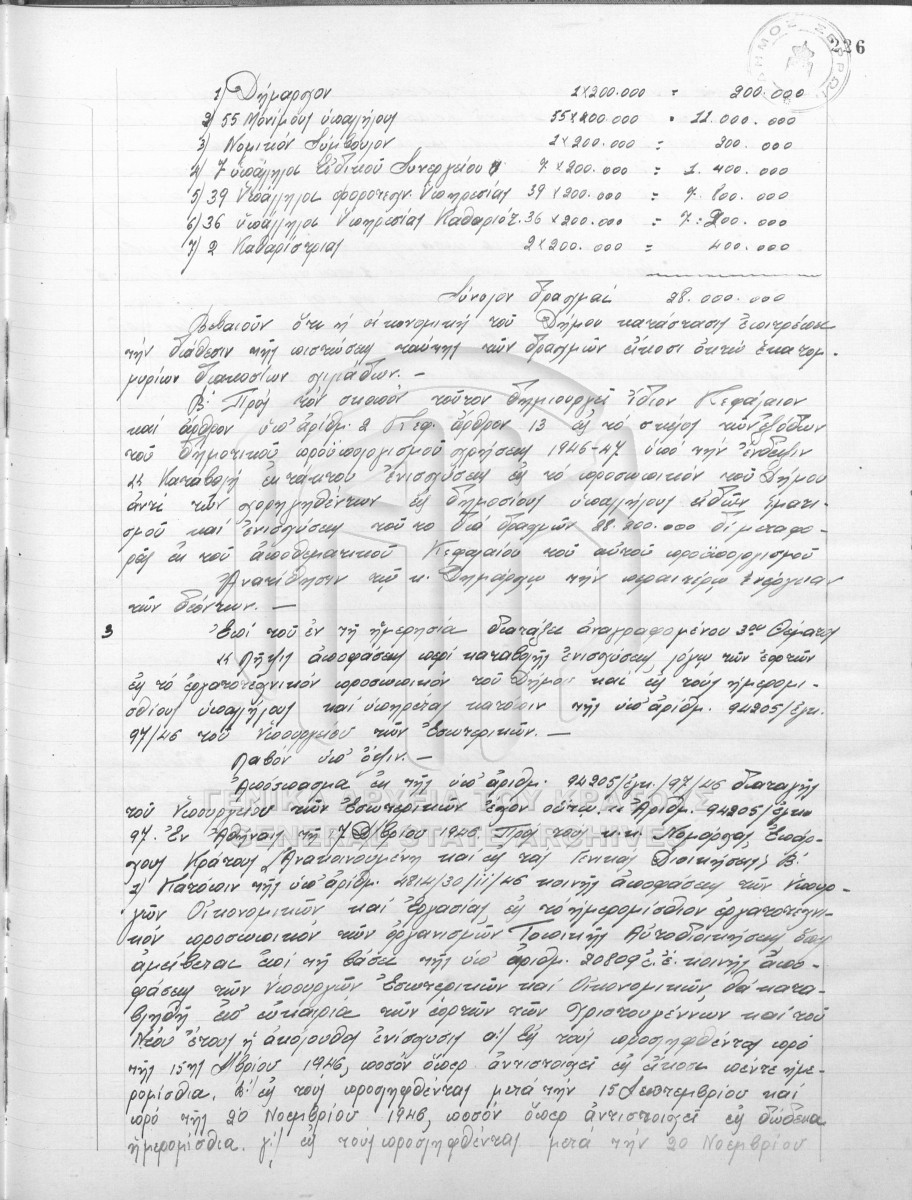 226
ΔΗΜΟΣ ΣΕΡΡΩΝ
1) Δήμαρχον 1×200.000 = 200.000
2) 55 Μονίμους ὑπαλλήλους 55×200.000 = 11.000.000
3) Νομικόν Σύμβουλον 1×200.000 = 200.000
4) 7 ὑπαλλήλους Εἰδικοῦ Συνεργείου 7×200.000 = 1.400.000
5) 39 Ὑπαλλήλους φοροτεχν. Ὑπηρεσίας 39×200.000 = 7.800.000
6) 36 ὑπαλλήλους Ὑπηρεσίας Καθαριότ. 36×200.000 = 7.200.000
7) 2 Καθαρίστριας 2×200.000 = 400.000
Σύνολον δραχμαί 28.000.000
Βεβαιοῦν ὅτι ἡ οἰκονομική τοῦ Δήμου κατάστασις ἐπιτρέπει
τήν διάθεσιν τῆς πιστώσεως ταύτης τῶν δραχμῶν εἴκοσι ὀκτώ ἑκατομ-
μυρίων διακοσίων χιλιάδων. —
Β' Πρός τόν σκοπόν τοῦτον δημιουργεῖ ἴδιον Κεφάλαιον
καί ἄρθρον ὑπ' ἀριθμ. 2 Κεφ. ἄρθρον 13 εἰς τό σκέλος τῶν ἐξόδων
τοῦ δημοτικοῦ προϋπολογισμοῦ χρήσεως 1946-47 ὑπό τήν ἔνδειξιν
"Καταβολή ἐκτάκτου ἐνισχύσεως εἰς τό προσωπικόν τοῦ Δήμου
ἀντί τῶν χορηγηθέντων εἰς δημοσίους ὑπαλλήλους εἰδῶν ἱματι-
σμοῦ καί ἐνισχύσεως τοῦτο διά δραχμῶν 28.200.000 διά μεταφο-
ρᾶς ἐκ τοῦ ἀποθεματικοῦ Κεφαλαίου τοῦ αὐτοῦ προϋπολογισμοῦ
Ἀνατίθησιν τῷ κ. Δημάρχῳ τήν περαιτέρω ἐνέργειαν
τῶν δεόντων. —
3 Ἐπί τοῦ ἐν τῇ ἡμερησία διατάξει ἀναγραφομένου 3ου Θέματος
"Λῆψις ἀποφάσεως περί καταβολῆς ἐνισχύσεως λόγω τῶν ἑορτῶν
εἰς τό ἐργατοτεχνικόν προσωπικόν τοῦ Δήμου καί εἰς τούς ἡμερομι-
σθίους ὑπαλλήλους καί ὑπηρέτας κατόπιν τῆς ὑπ' ἀριθμ. 94205/ἐγκ.
97/46 τοῦ Ὑπουργείου τῶν Ἐσωτερικῶν. —
Λαβόν ὑπ' ὄψιν. —
Ἀπόσπασμα ἐκ τῆς ὑπ' ἀριθμ. 94205/ἐγκ./97/46 διαταγῆς
τοῦ Ὑπουργείου τῶν Ἐσωτερικῶν ἔχον οὕτω. "Ἀριθμ. 94205/ἐγκ.
97. Ἐν Ἀθήναις τῇ 7 Δ/βρίου 1946. Πρός τούς κ.κ. Νομάρχας, Ἐπάρ-
χους Κράτους (Ἀνακοινουμένη καί εἰς τάς Γενικάς Διοικήσεις) Β'.
1) Κατόπιν τῆς ὑπ' ἀριθμ. 4814/30/11/46 κοινῆς ἀποφάσεως τῶν Ὑπουρ-
γῶν Οἰκονομικῶν καί Ἐργασίας, εἰς τό ἡμερομίσθιον ἐργατοτεχνι-
κόν προσωπικόν τῶν ὀργανισμῶν Τοπικῆς Αὐτοδιοικήσεως ὅπερ
ἀμείβεται ἐπί τῇ βάσει τῆς ὑπ' ἀριθμ. 20809 ἐ.ἔ. κοινῆς ἀπο-
φάσεως τῶν Ὑπουργῶν Ἐσωτερικῶν καί Οἰκονομικῶν, θά κατα-
βληθῇ ἐπ' εὐκαιρία τῶν ἑορτῶν τῶν Χριστουγέννων καί τοῦ
Νέου Ἔτους ἡ ἀκόλουθος ἐνίσχυσις α') Εἰς τούς προσληφθέντας πρό
τῆς 15ης 7/βρίου 1946, ποσόν ὅπερ ἀντιστοιχεῖ εἰς εἴκοσι πέντε ἡμε-
ρομίσθια. β') εἰς τούς προσληφθέντας μετά τήν 15 Σεπτεμβρίου καί
πρό τῆς 20 Νοεμβρίου 1946, ποσόν ὅπερ ἀντιστοιχεῖ εἰς δώδεκα
ἡμερομίσθια. γ') εἰς τούς προσληφθέντας μετά τήν 20 Νοεμβρίου
ΓΕΝΙΚΑ ΑΡΧΕΙΑ ΤΟΥ ΚΡΑΤΟΥΣ
GENERAL STATE ARCHIVES